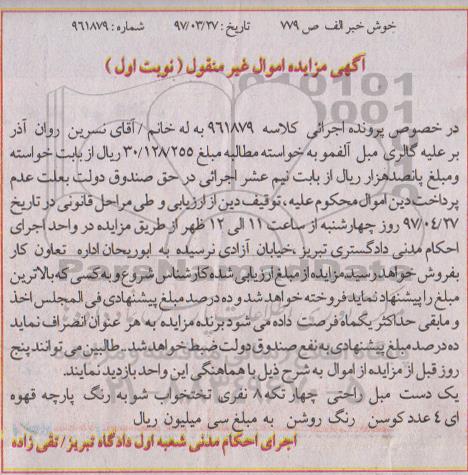 خوش خبر الف ص ۷۷۹ تاریخ: ۹۷/۰۳/۲۷ شماره: ۹۶۱۸۷۹
آگهی مزایده اموال غیر منقول ( نوبت اول )
در خصوص پرونده اجرائی کلاسه ۹۶۱۸۷۹ به له خانم / آقای نسرین روان آذر
بر علیه گالری مبل آلفمو به خواسته مطالبه مبلغ ۳۰/۱۲۸/۲۵۵ ریال از بابت خواسته
و مبلغ پانصدهزار ریال از بابت نیم عشر اجرائی در حق صندوق دولت بعلت عدم
پرداخت دین اموال محکوم علیه، توقیف دین از ارزیابی و طی مراحل قانونی در تاریخ
۹۷/۰۴/۲۷ روز چهارشنبه از ساعت ۱۱ الی ۱۲ ظهر از طریق مزایده در واحد اجرای
احکام مدنی دادگستری تبریز ،خیابان آزادی نرسیده به ابوریحان اداره تعاون کار
بفروش خواهد رسید مزایده از مبلغ ارزیابی شده کارشناس شروع و به کسی که بالاترین
مبلغ را پیشنهاد نماید فروخته خواهد شد و ده درصد مبلغ پیشنهادی فی المجلس اخذ
و مابقی حداکثر یکماه فرصت داده می شود برنده مزایده به هر عنوان انصراف نماید
ده درصد مبلغ پیشنهادی به نفع صندوق دولت ضبط خواهد شد. طالبین می توانند پنج
روز قبل از مزایده از اموال به شرح ذیل با هماهنگی این واحد بازدید نمایند.
یک دست مبل راحتی چهار تکه ۸ نفری تختخواب شو به رنگ پارچه قهوه
ای ۴ عدد کوسن رنگ روشن به مبلغ سی میلیون ریال
اجرای احکام مدنی شعبه اول دادگاه تبریز / تقی زاده